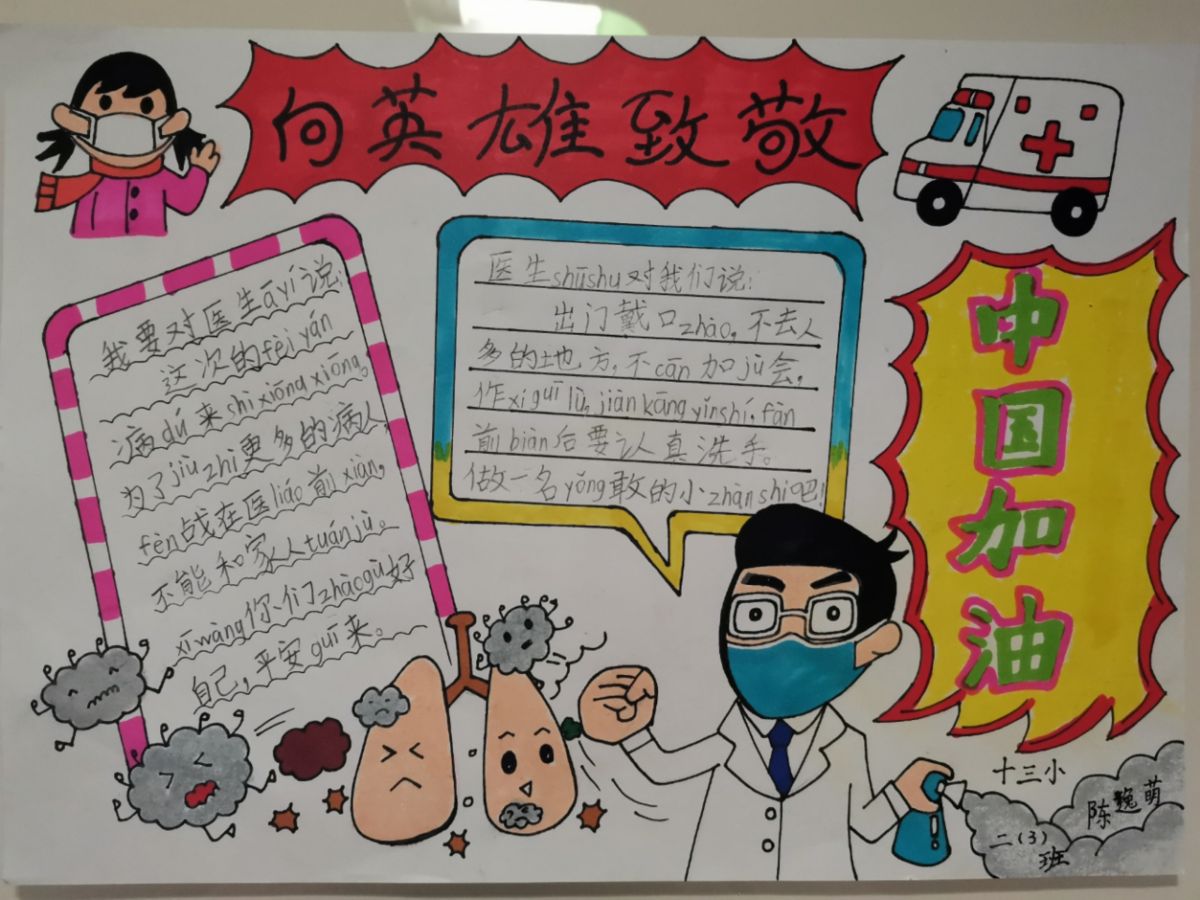 向英雄致敬
我要对医生āyí说：
这次的fèiyán
病dú来shìxiōngxiōng。
为了jiùzhì更多的病人，
fèn战在医liáo前xiàn，
不能和家人tuánjù。
xīwàng你们zhàogù好
自己，平安guī来。
医生shūshu对我们说：
出门戴口zhào，不去人
多的地方，不cān加jù会，
作xí guī lǜ，jiàn kāng yǐnshí，fàn
前biàn后要认真洗手。
做一名yǒng敢的小zhànshì吧！
中国加油
十三小
二（3）
班
陈巍萌